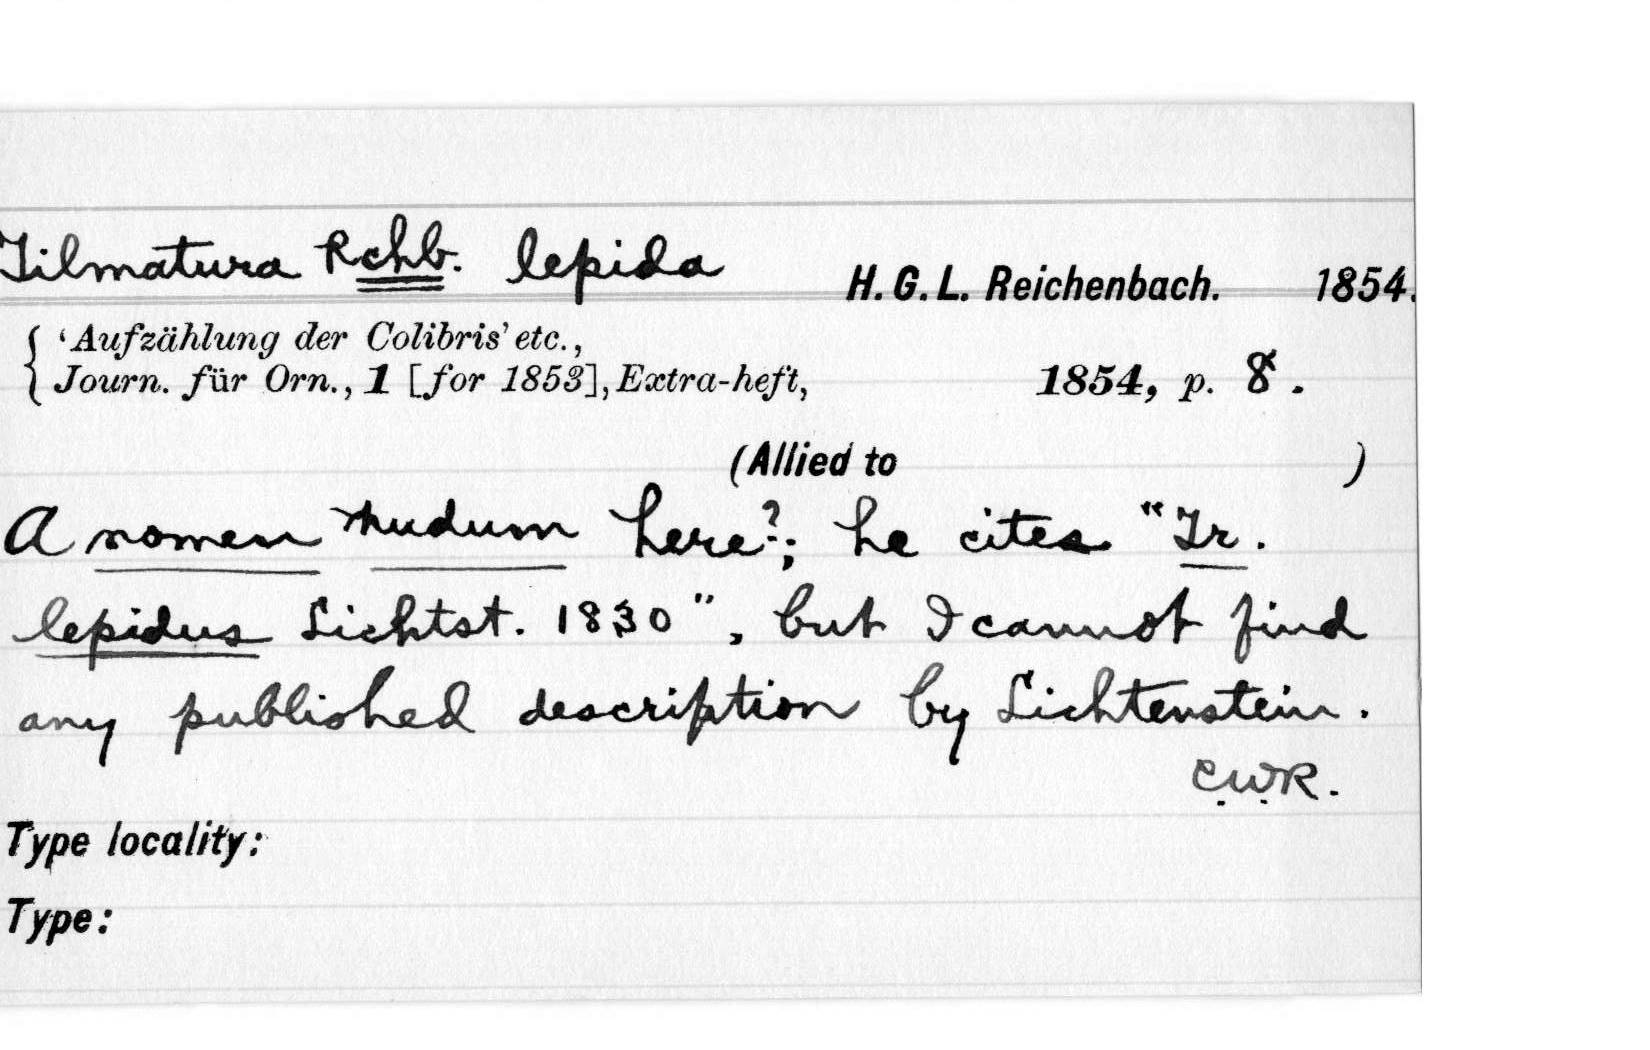 Tilmatura Rchb. lepida H. G. L. Reichenbach. 1854.
'Aufzählung der Colibris' etc.,
Journ. für Orn., 1 [for 1853], Extra-heft, 1854, p. 8.
(Allied to )
A nomen nudum here?; he cites "Tr.
lepidus Lichtst. 1830", but I cannot find
any published description by Lichtenstein.
C.W.R.
Type locality:
Type: